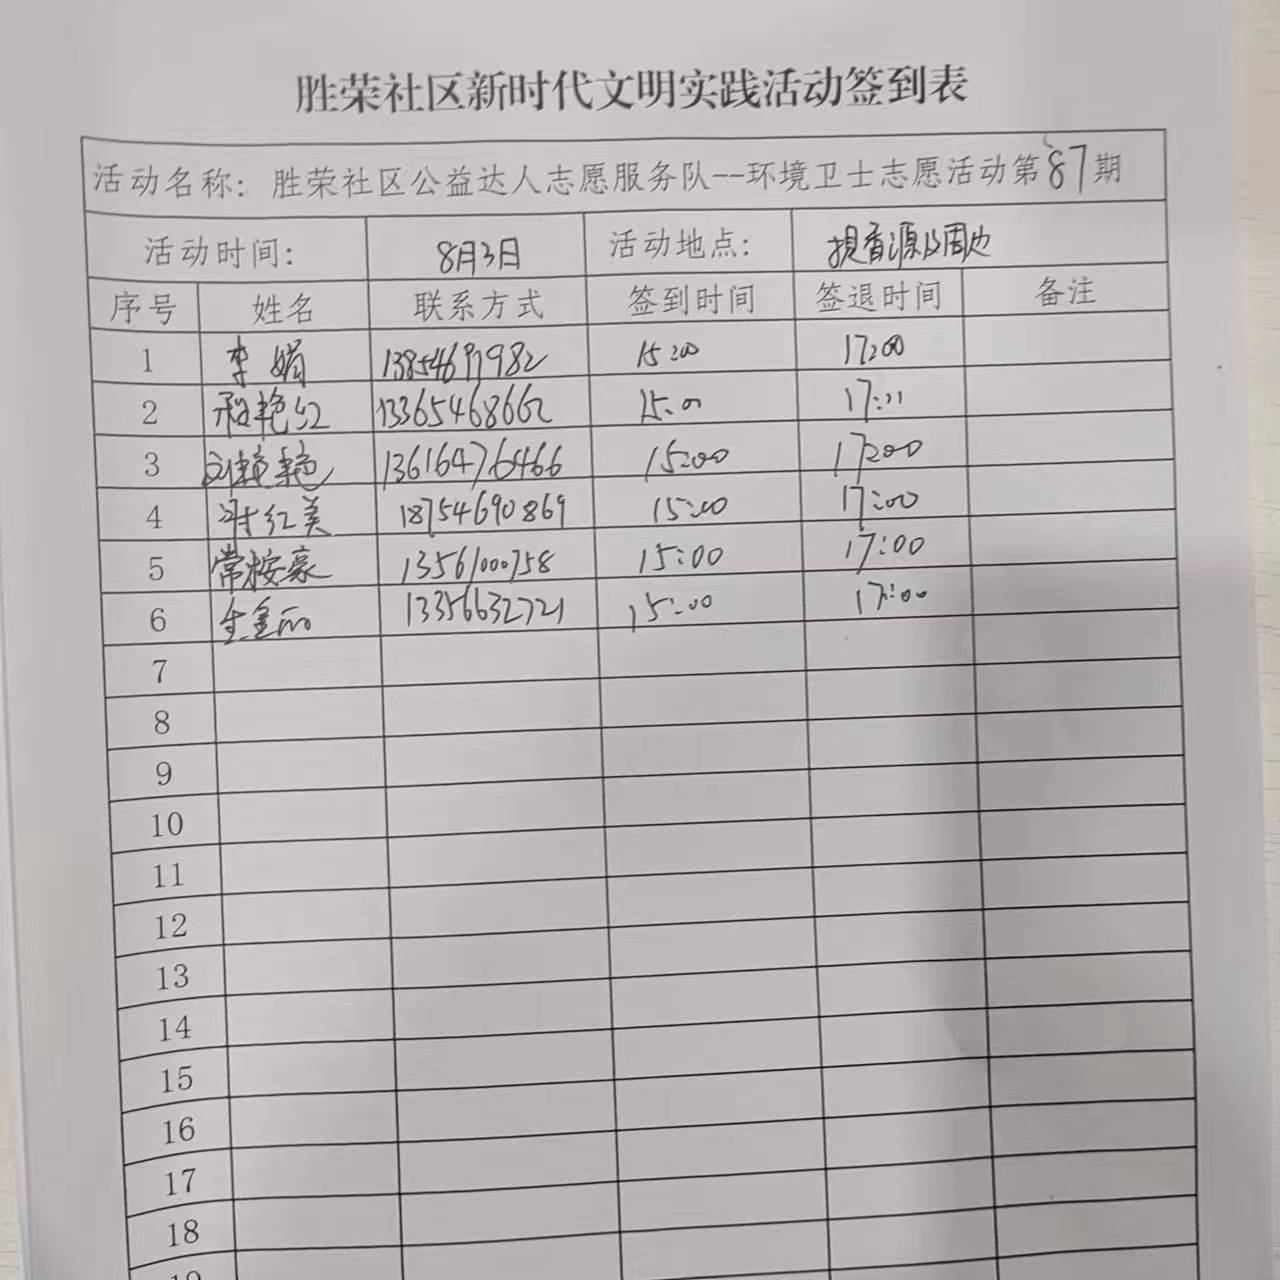 胜荣社区新时代文明实践活动签到表
活动名称：胜荣社区公益达人志愿服务队--环境卫士志愿活动第87期
活动时间： 8月3日 活动地点： 香源及周边
序号 姓名 联系方式 签到时间 签退时间 备注
1 李娟 15:00 17:00
2 艳红 13365468662 15:00 17:00
3 刘艳艳 13616476466 15:00 17:00
4 红美 18754690869 15:00 17:00
5 常桉豪 13561000758 15:00 17:00
6 生金丽 13356632721 15:00 17:00
7
8
9
10
11
12
13
14
15
16
17
18
19